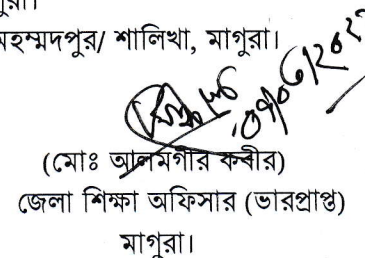 গুরা।
মহম্মদপুর/ শালিখা, মাগুরা।
(মোঃ আলমগীর কবীর)
জেলা শিক্ষা অফিসার (ভারপ্রাপ্ত)
মাগুরা।